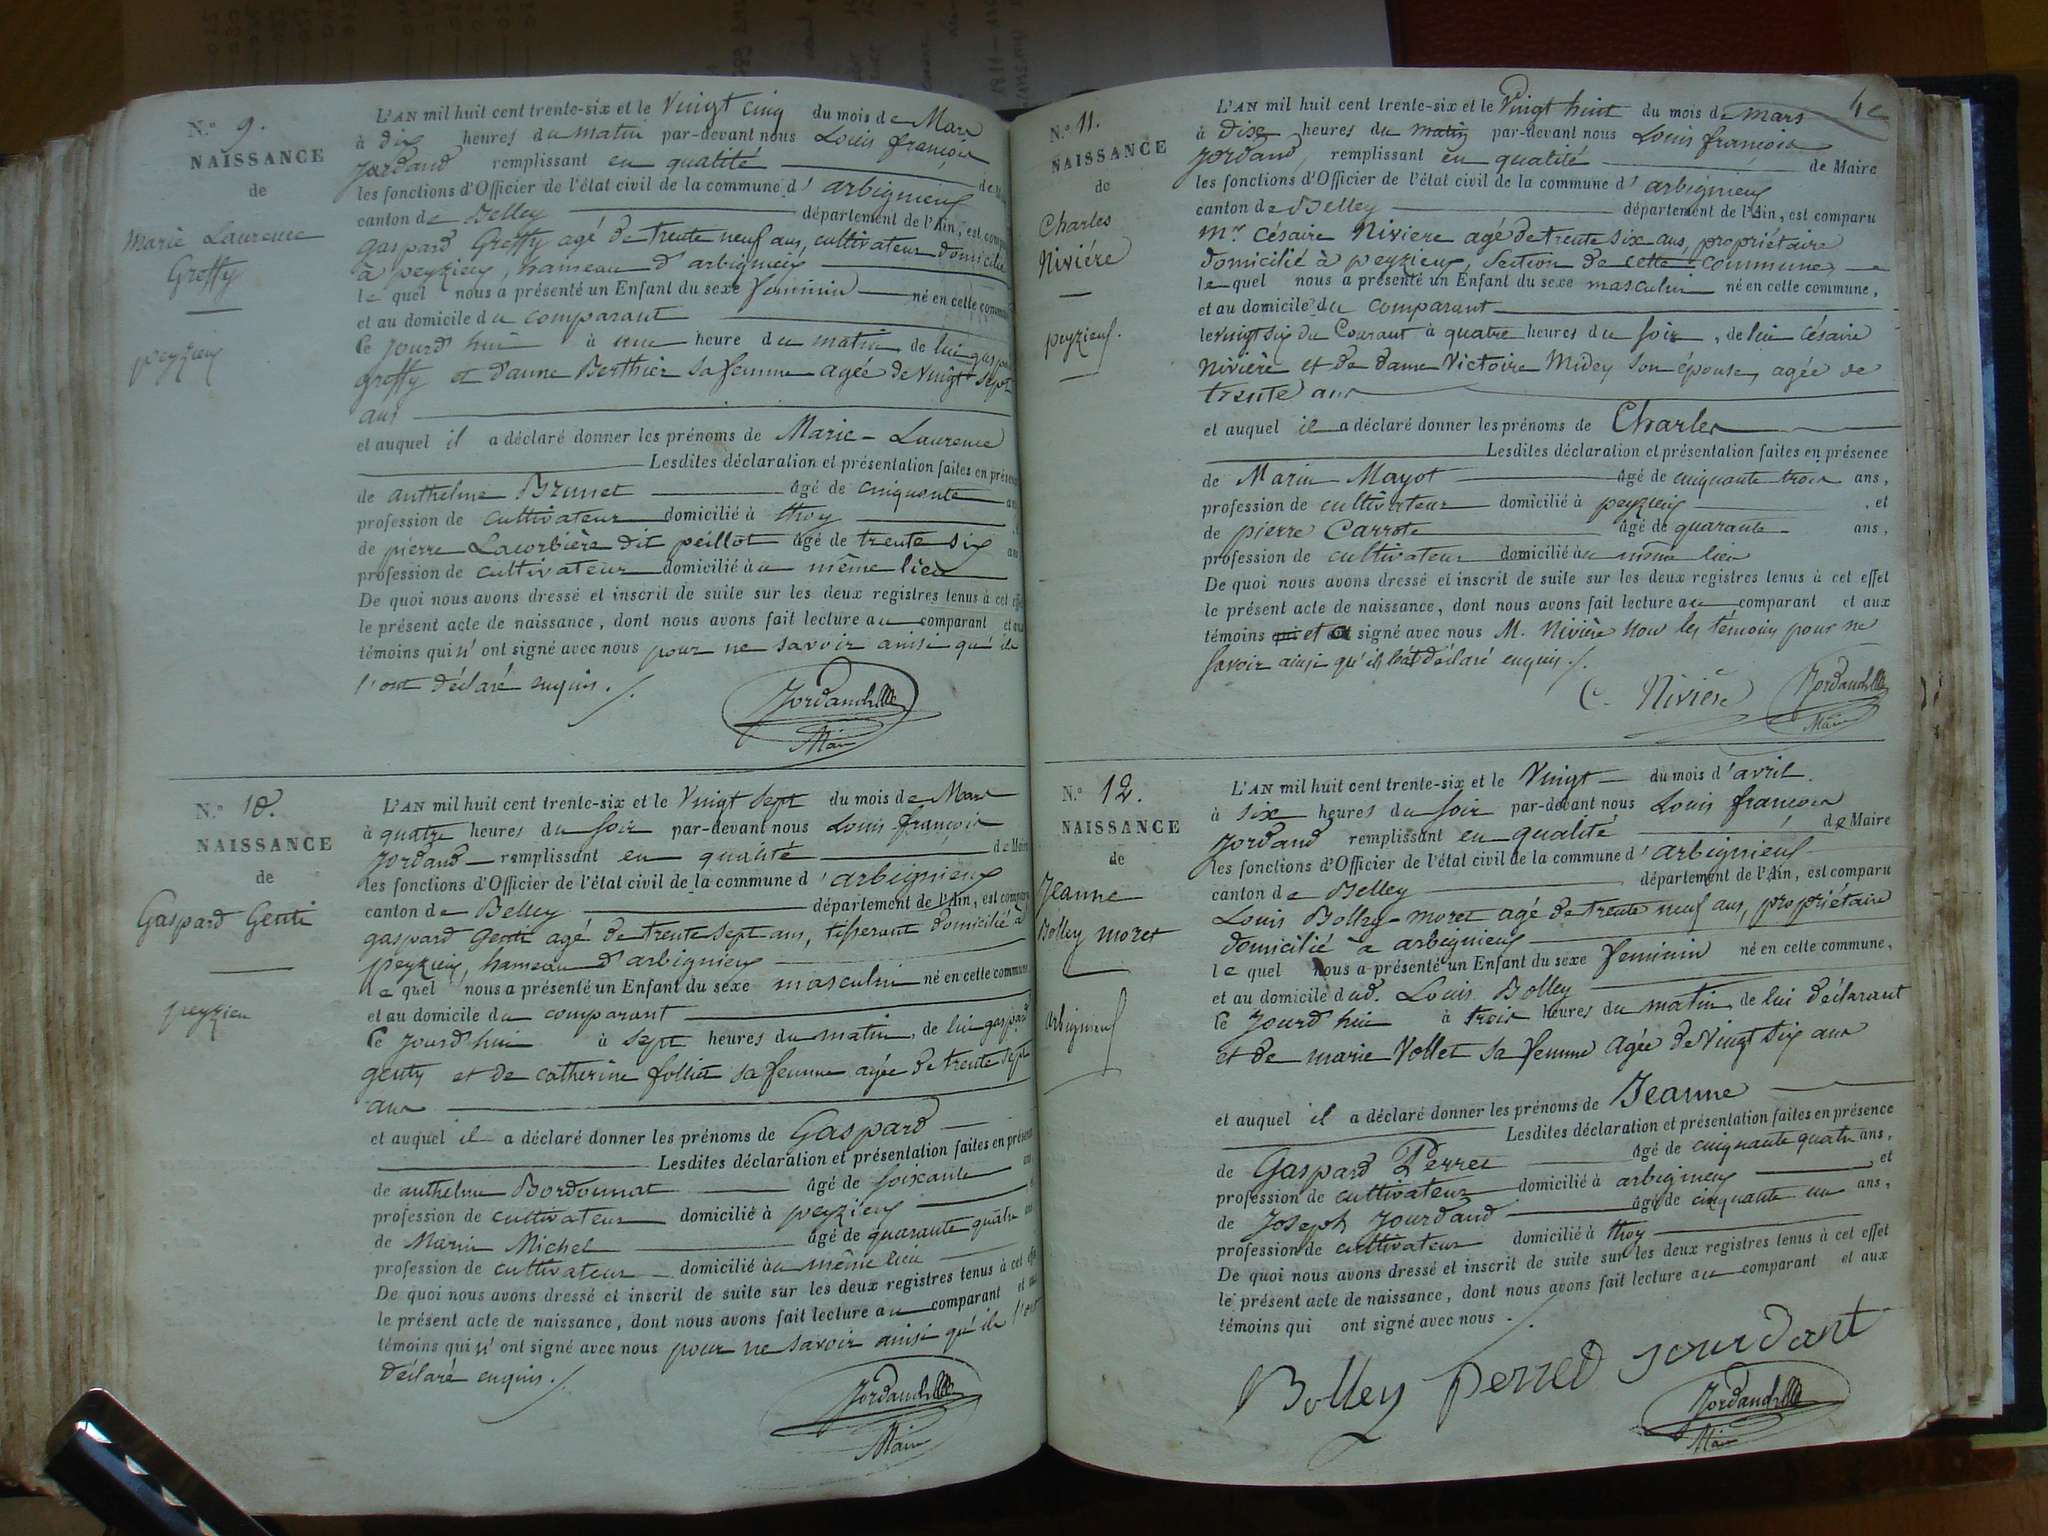 N.° 9.
NAISSANCE
de
Marie Laurence
Greffy
peyzieu
L'AN mil huit cent trente-six et le Vingt cinq du mois de Mars
à dix heures du matin par-devant nous Louis françois
Jordand remplissant en qualité de
les fonctions d'Officier de l'état civil de la commune d'arbignieu
canton de Belley département de l'Ain, est
gaspard Greffy agé de trente neuf ans, cultivateur domicilié
à peyzieu, hameau d'arbignieu
le quel nous a présenté un Enfant du sexe feminin né en cette
et au domicile du comparant
Ce jourd'hui à une heure du matin, de lui
greffy et d'anne Berthier sa femme agée de Vingt sept
ans
et auquel il a déclaré donner les prénoms de Marie-Laurence
Lesdites déclaration et présentation faites en
de anthelme Brunet âgé de cinquante
profession de cultivateur domicilié à thoy
de pierre Lacorbière dit peillot âgé de trente six
profession de cultivateur domicilié au même lieu
De quoi nous avons dressé et inscrit de suite sur les deux registres tenus à cet
le présent acte de naissance, dont nous avons fait lecture au comparant et
témoins qui n'ont signé avec nous pour ne savoir ainsi qu'ils
l'ont déclaré enquis ./.
Jordand
Maire
N.° 10.
NAISSANCE
de
Gaspard Genti
peyzieu
L'AN mil huit cent trente-six et le Vingt sept du mois de Mars
à quatre heures du soir par-devant nous Louis françois
Jordand remplissant en qualité de Maire
les fonctions d'Officier de l'état civil de la commune d'arbignieu
canton de Belley département de l'Ain, est
gaspard Genti agé de trente sept ans, tisserant domicilié à
peyzieu, hameau d'arbignieu
le quel nous a présenté un Enfant du sexe masculin né en cette commune
et au domicile du comparant
Ce jourd'hui à sept heures du matin, de lui gaspard
genty et de catherine folliet sa femme agée de trente sept
ans
et auquel il a déclaré donner les prénoms de Gaspard
Lesdites déclaration et présentation faites en
de anthelme Bordonnat âgé de soixante
profession de cultivateur domicilié à peyzieu
de Marin Michel âgé de quarante quatre
profession de cultivateur domicilié au même lieu
De quoi nous avons dressé et inscrit de suite sur les deux registres tenus à cet
le présent acte de naissance, dont nous avons fait lecture au comparant et
témoins qui n'ont signé avec nous pour ne savoir ainsi qu'ils l'ont
déclaré enquis ./.
Jordand
Maire
N.° 11.
NAISSANCE
de
Charles
Nivière
peyzieu.
L'AN mil huit cent trente-six et le Vingt huit du mois de mars
à dix heures du matin par-devant nous Louis françois
Jordand, remplissant en qualité de Maire
les fonctions d'Officier de l'état civil de la commune d'arbignieu
canton de Belley département de l'Ain, est comparu
Mr. Césaire Niviere agé de trente six ans, propriétaire
domicilié à peyzieu, section de cette commune,
le quel nous a présenté un Enfant du sexe masculin né en cette commune,
et au domicile du comparant
le vingt six du Courant à quatre heures du soir, de lui césaire
Nivière et de dame Victoire Midey son épouse, agée de
trente ans
et auquel il a déclaré donner les prénoms de Charles
Lesdites déclaration et présentation faites en présence
de Marin Mayot âgé de cinquante trois ans,
profession de cultivateur domicilié à peyzieu, et
de pierre Carrote âgé de quarante ans,
profession de cultivateur domicilié au même lieu
De quoi nous avons dressé et inscrit de suite sur les deux registres tenus à cet effet
le présent acte de naissance, dont nous avons fait lecture au comparant et aux
témoins et a signé avec nous M. Nivière non les témoins pour ne
savoir ainsi qu'ils déclaré enquis ./.
C. Nivière
Jordand
Maire
N.° 12.
NAISSANCE
de
Jeanne
Bolley moret
Arbignieu
L'AN mil huit cent trente-six et le Vingt du mois d'avril.
à six heures du soir par-devant nous Louis françois
Jordand remplissant en qualité de Maire
les fonctions d'Officier de l'état civil de la commune d'arbignieu
canton de Belley département de l'Ain, est comparu
Louis Bolley-moret agé de trente neuf ans, propriétaire
domicilié à arbignieu
le quel nous a présenté un Enfant du sexe feminin né en cette commune,
et au domicile dud. Louis Bolley
Ce jourd'hui à trois heures du matin, de lui déclarant
et de marie Vollet sa femme agée de Vingt six ans
et auquel il a déclaré donner les prénoms de Jeanne
Lesdites déclaration et présentation faites en présence
de Gaspard Perret âgé de cinquante quatre ans,
profession de cultivateur domicilié à arbignieu et
de Joseph Jourdand âgé de cinquante un ans,
profession de cultivateur domicilié à thoy
De quoi nous avons dressé et inscrit de suite sur les deux registres tenus à cet effet
le présent acte de naissance, dont nous avons fait lecture au comparant et aux
témoins qui ont signé avec nous ./.
Bolley perred jourdant
Jordand
Maire